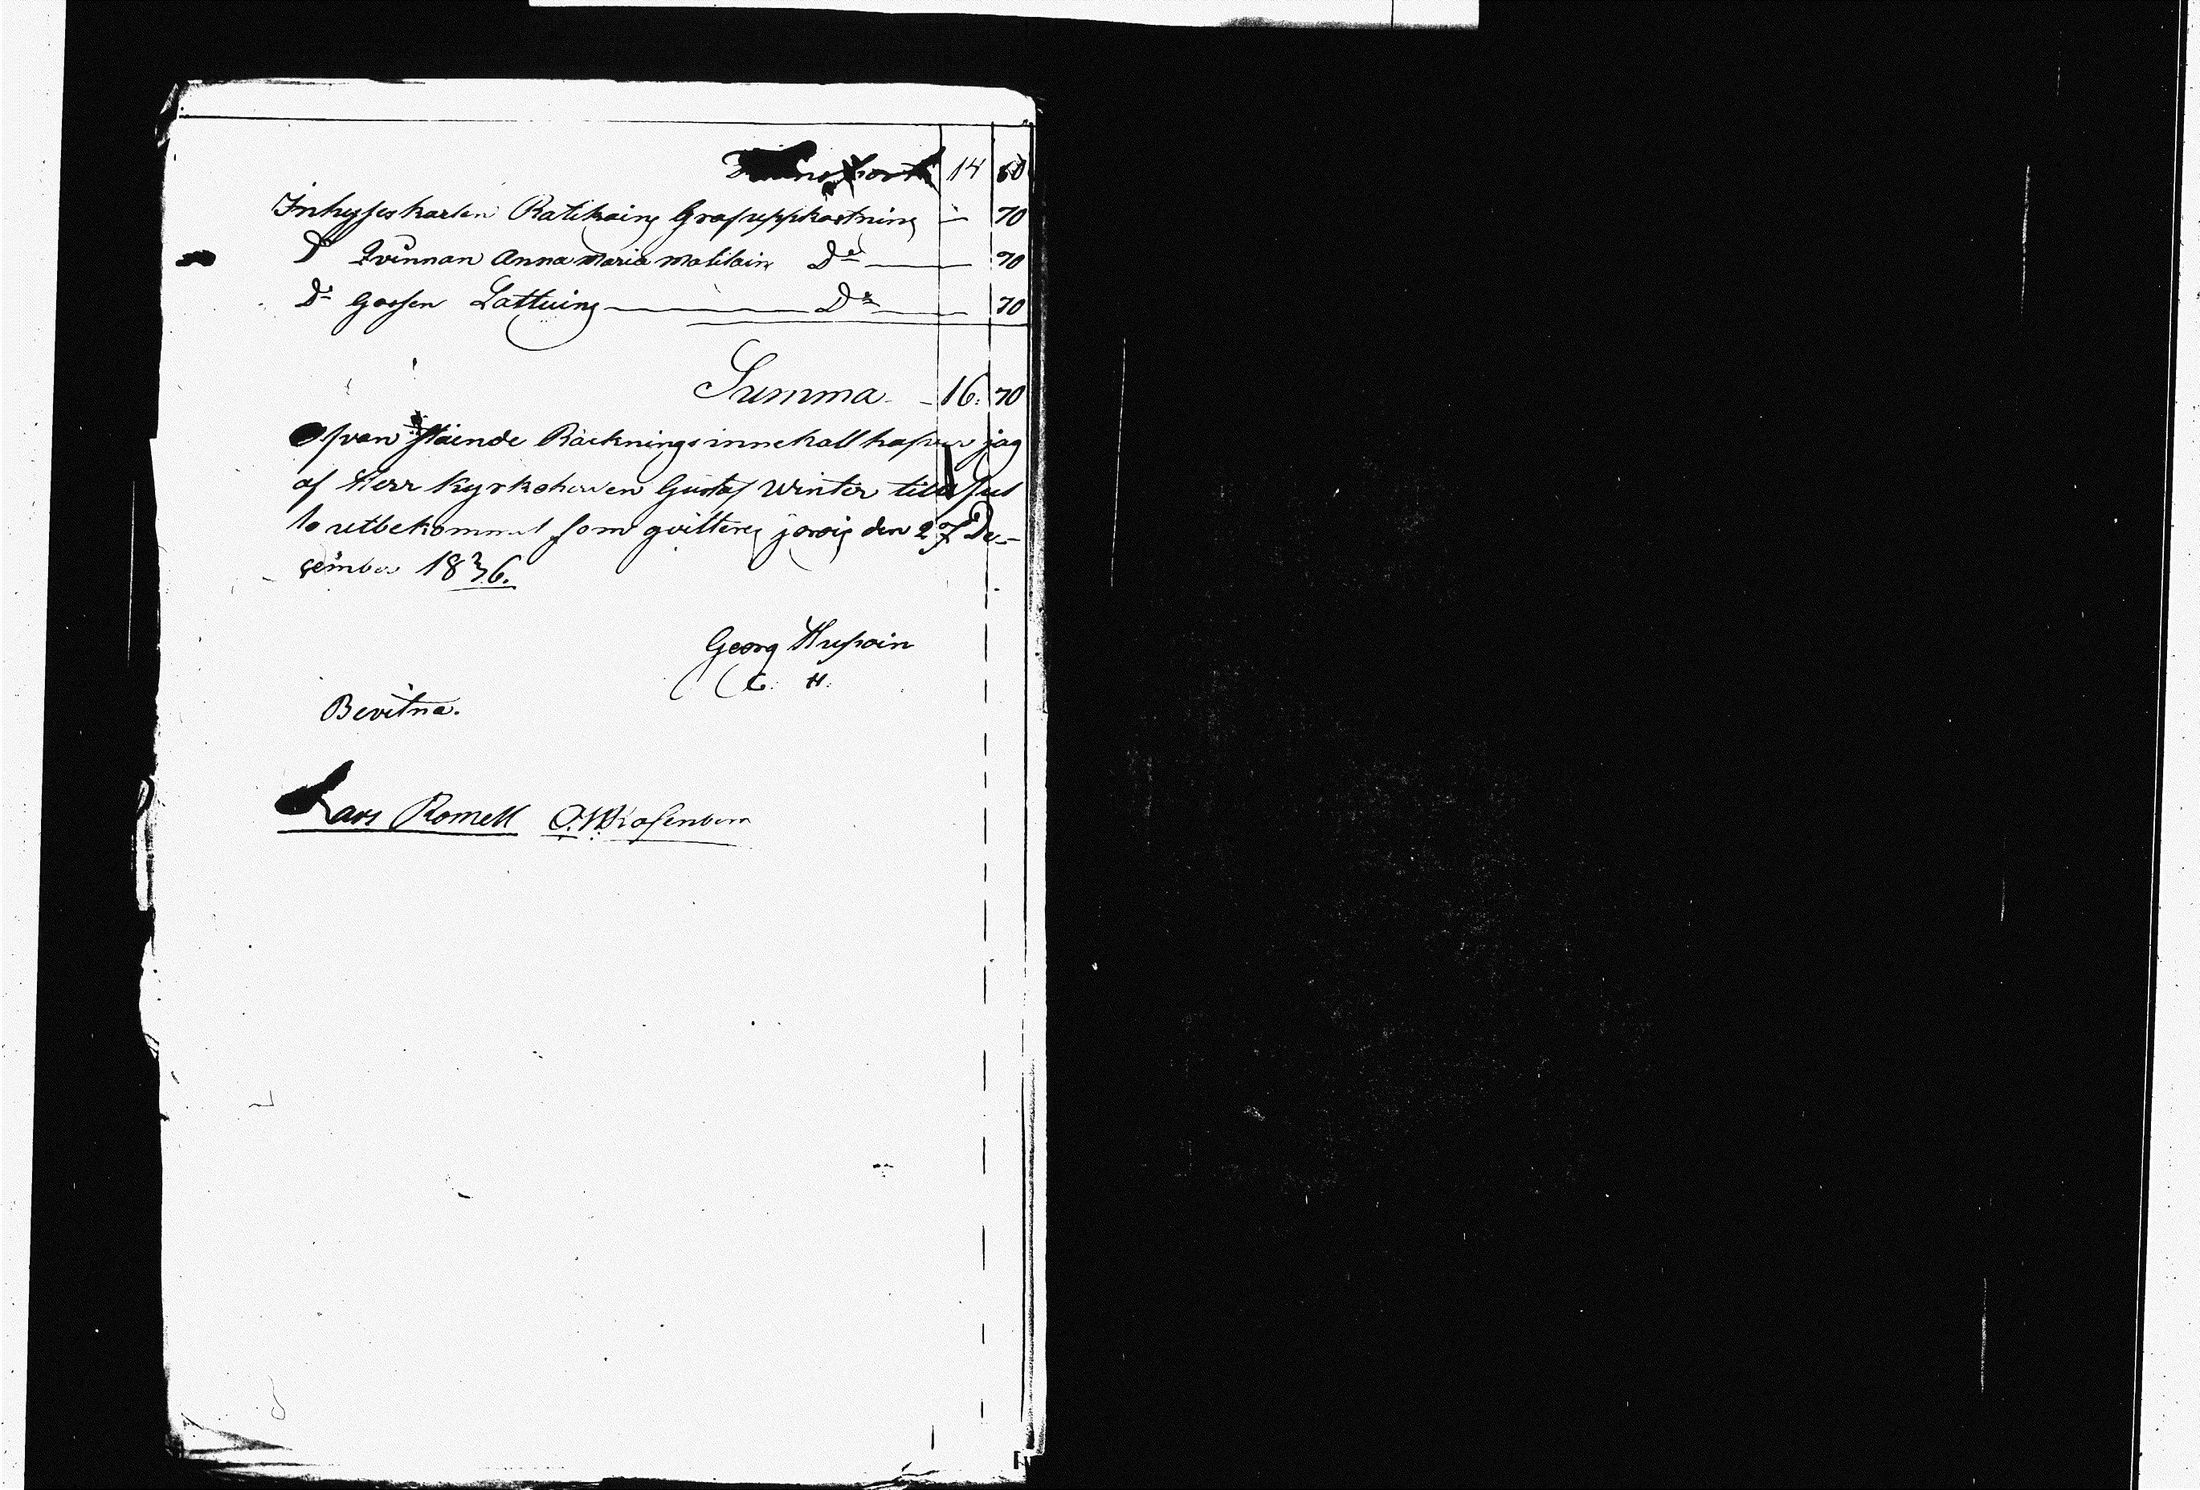 Transport 14 60
Inhyseskarlen Ratikain Grafuppkastning — 70
Do Qvinnan Anna Maria Malilain Do — 70
Do Gossen Lattuin — Do — 70
Summa 16. 70
Ofvan stående Räcknings innehall hafver jag
af Herr Kyrkoherden Gustaf Winter till ful
lo utbekommit som qvitteras jorois den 27 De-
cember 1836.
Georg Hyvöin
C. H.
Bevitna.
Lars Romell